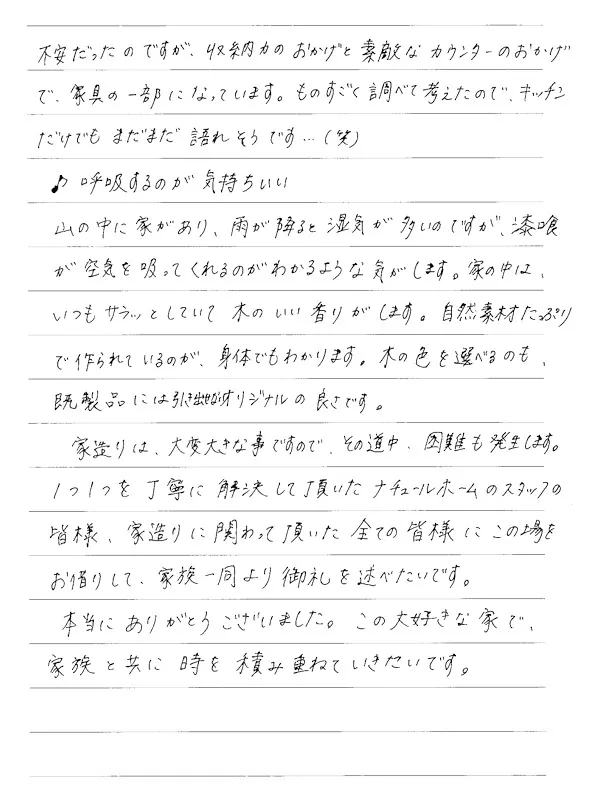 不安だったのですが、収納力のおかげと素敵なカウンターのおかげ
で、家具の一部になっています。ものすごく調べて考えたので、キッチン
だけでもまだまだ語れそうです…(笑)
♪呼吸するのが気持ちいい
山の中に家があり、雨が降ると湿気が多いのですが、漆喰
が空気を吸ってくれるのがわかるような気がします。家の中は、
いつもサラッとしていて木のいい香りがします。自然素材たっぷり
で作られているのが、身体でもわかります。木の色を選べるのも、
既製品には引き出せないオリジナルの良さです。
家造りは、大変大きな事ですので、その道中、困難も発生します。
1つ1つを丁寧に解決して頂いたナチュールホームのスタッフの
皆様、家造りに関わって頂いた全ての皆様にこの場を
お借りして、家族一同より御礼を述べたいです。
本当にありがとうございました。この大好きな家で、
家族と共に時を積み重ねていきたいです。